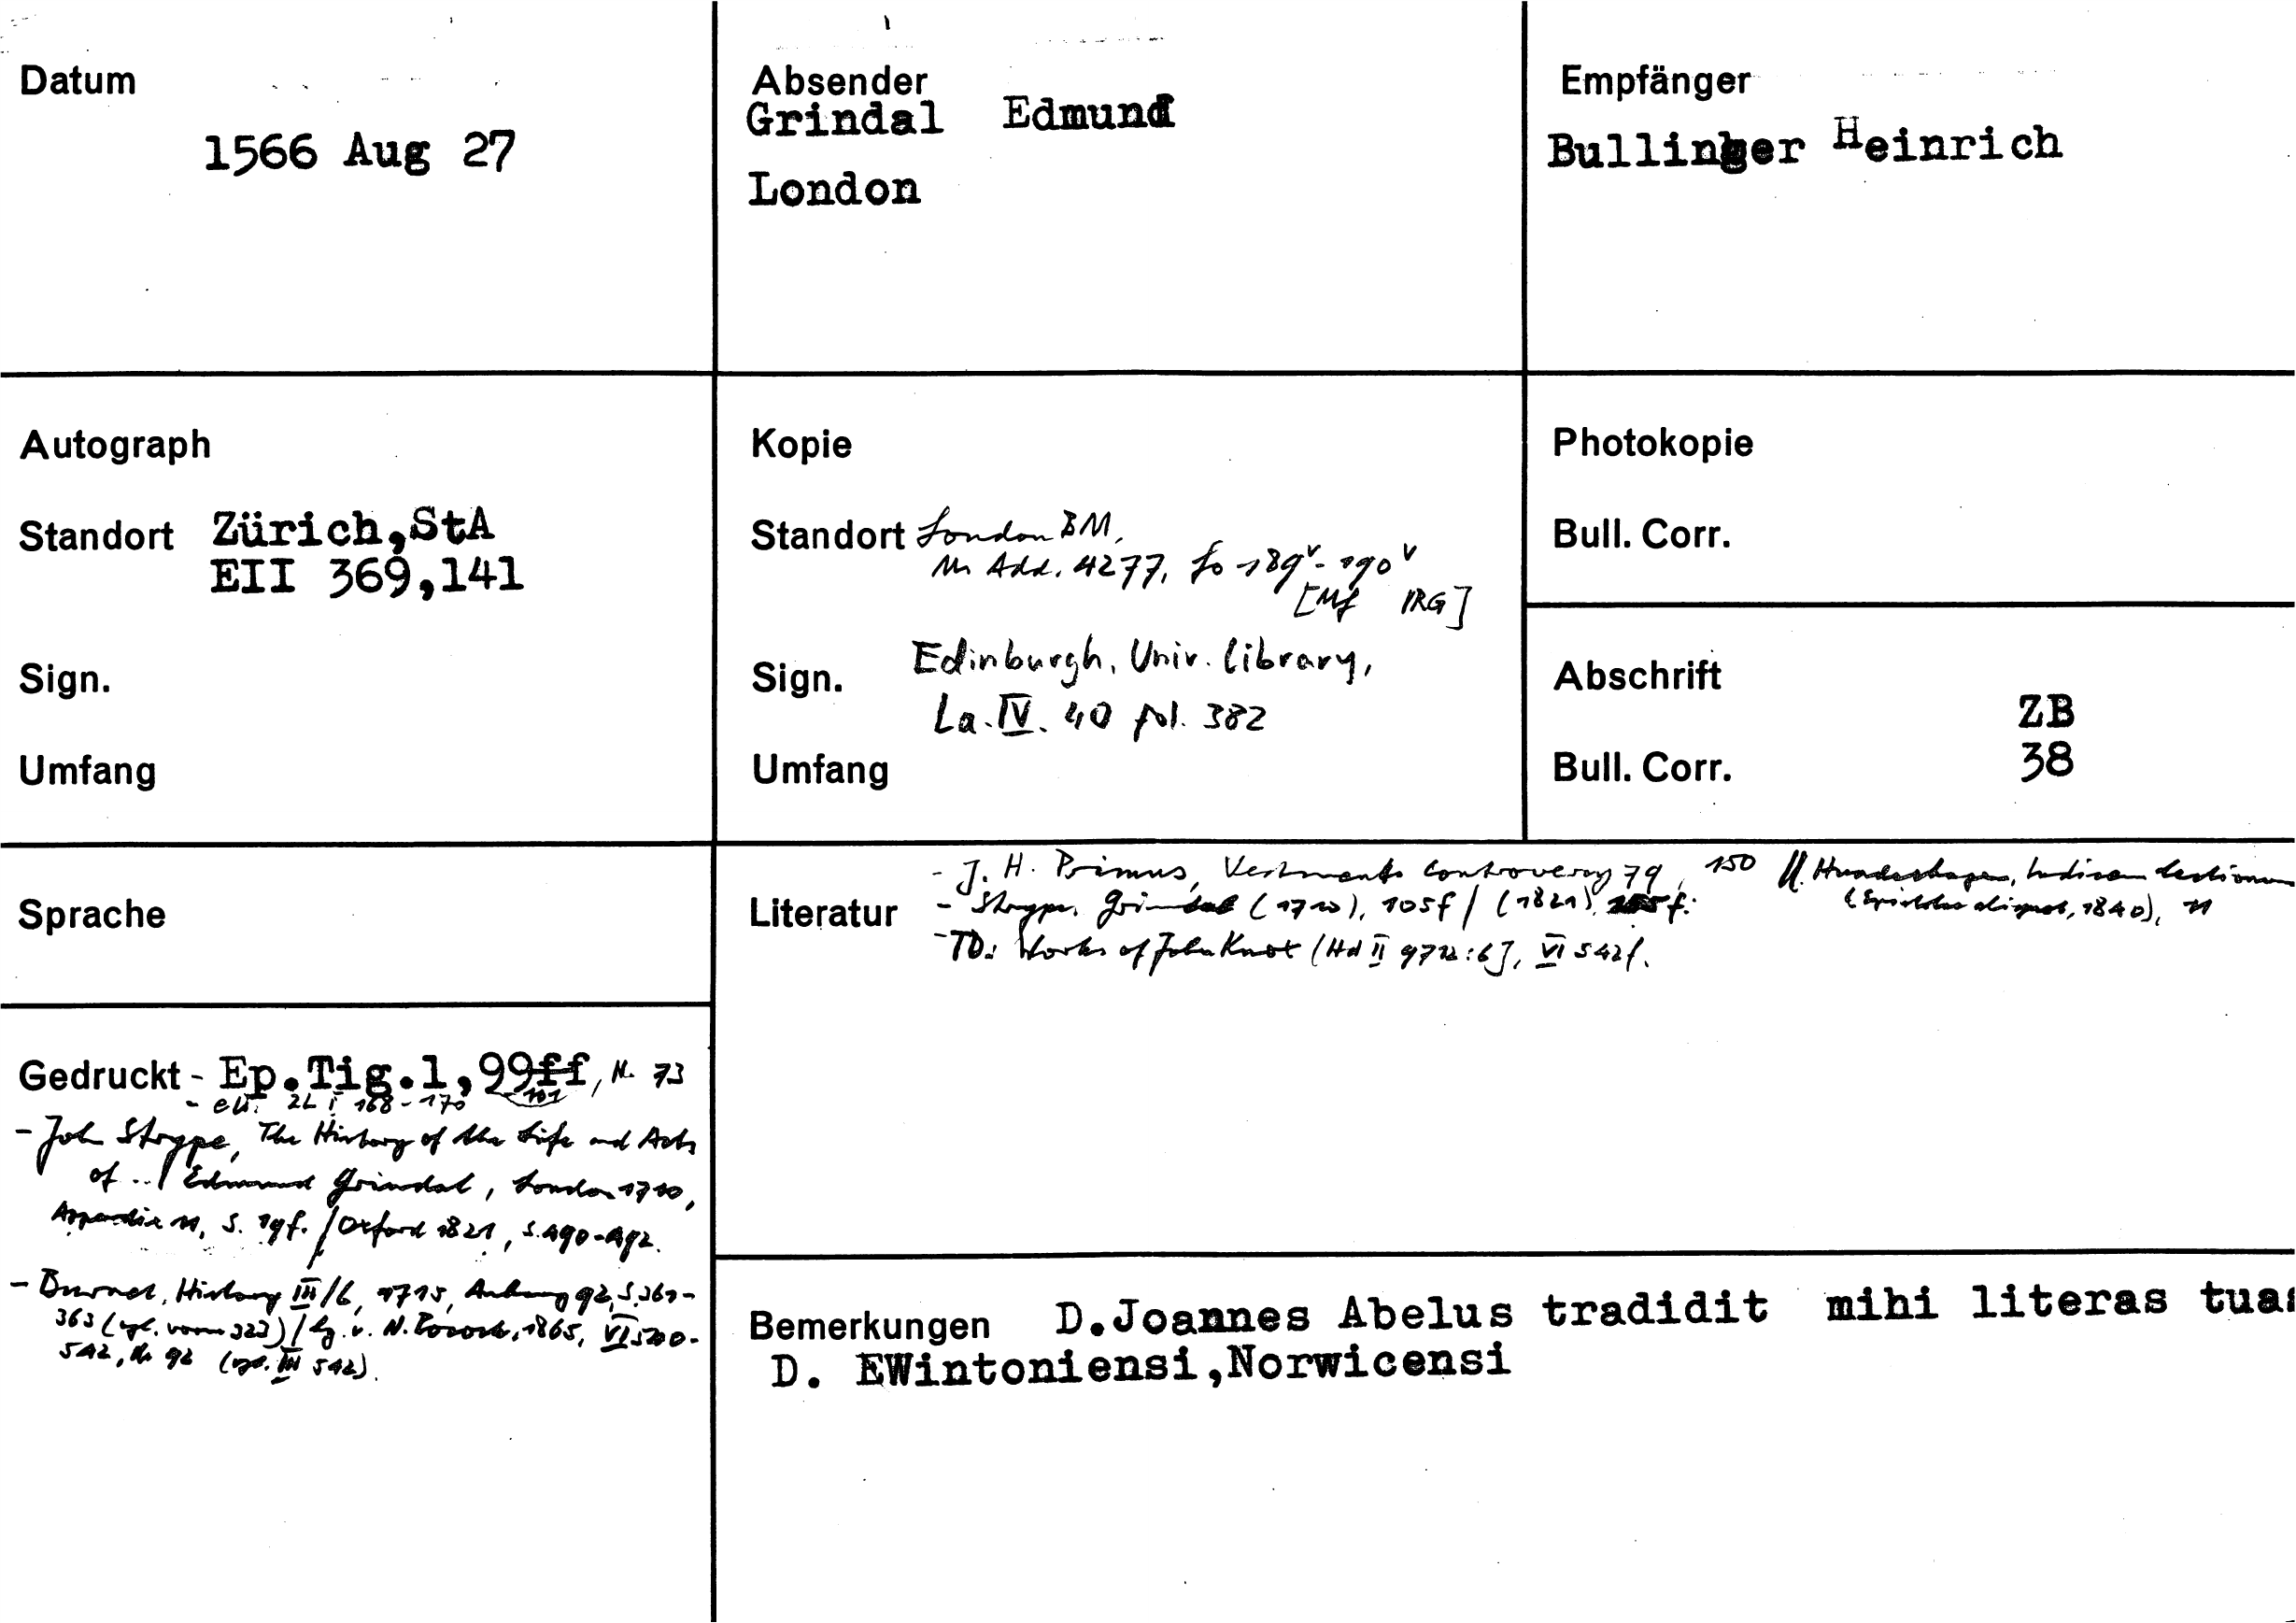 Datum
1566 Aug 27
Absender
Grindal Edmund
London
Empfänger
Bullinger Heinrich
Autograph
Standort Zürich,StA
EII 369,141
Sign.
Umfang
Kopie
Standort London BM,
Ms Add. 4277, fo 189v-190v
[Mf IRG]
Sign. Edinburgh, Univ. Library,
La. IV. 40 fol. 382
Umfang
Photokopie
Bull. Corr.
Abschrift
ZB
Bull. Corr. 38
Sprache
Literatur
- J. H. Primus, Vestments Controversy 79, 150
- Strype, Grindal (1710), 105f / (1821)
- TD: Works of John Knox VI 542f.
// Hundeshagen,
(Epistolae aliquot, 1840), 11
Gedruckt - Ep.Tig.1,99ff, Nr. 73
101
- ZL I 168-170
- John Strype, The History of the Life and Acts
of ... Edmund Grindal, London 1710,
Appendix 11, S. 19f. / Oxford 1821, S. 490-492.
- Burnet, History III/6, 1715, Anhang 92, S. 361-
363 (vgl. vorn 323) / hg. v. N. Pocock, 1865, VI
542, Nr 92 (vgl. III 542).
Bemerkungen D.Joannes Abelus tradidit mihi literas tuas
D. EWintoniensi,Norwicensi